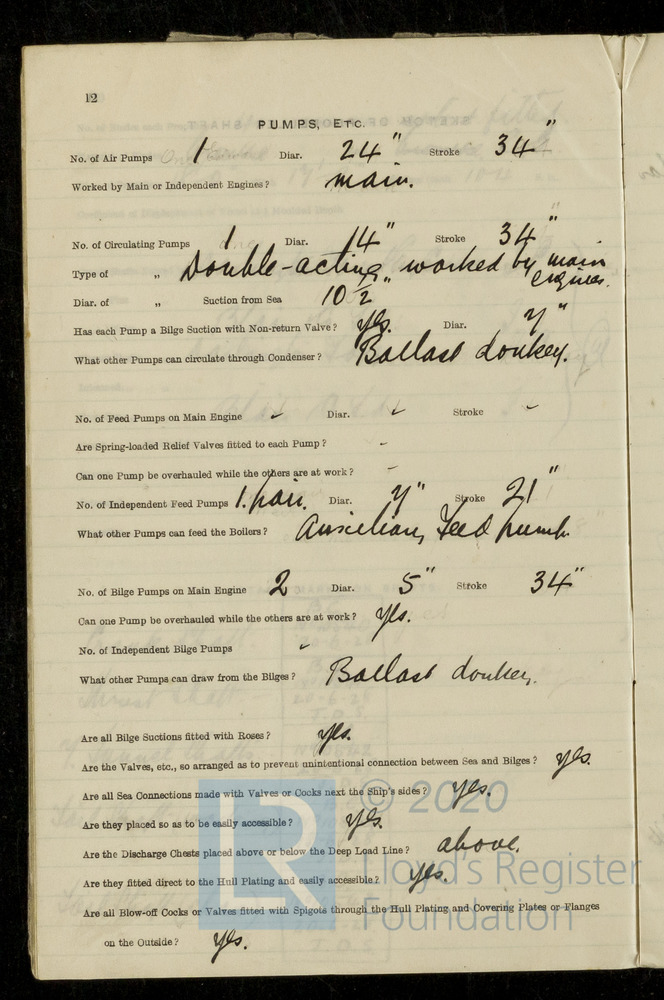 12
PUMPS, ETC.
No. of Air Pumps 1 Diar. 24" Stroke 34"
Worked by Main or Independent Engines? main.
No. of Circulating Pumps 1 Diar. 14" Stroke 34"
Type of „ Double-acting, worked by main
engines.
Diar. of „ Suction from Sea 10 1/2"
Has each Pump a Bilge Suction with Non-return Valve? yes. Diar. 7"
What other Pumps can circulate through Condenser? Ballast donkey.
No. of Feed Pumps on Main Engine Diar. Stroke
Are Spring-loaded Relief Valves fitted to each Pump? -
Can one Pump be overhauled while the others are at work? -
No. of Independent Feed Pumps 1. pair. Diar. 7" Stroke 21"
What other Pumps can feed the Boilers? Auxiliary Feed pump.
No. of Bilge Pumps on Main Engine 2 Diar. 5" Stroke 34"
Can one Pump be overhauled while the others are at work? yes.
No. of Independent Bilge Pumps
What other Pumps can draw from the Bilges? Ballast donkey.
Are all Bilge Suctions fitted with Roses? yes.
Are the Valves, etc., so arranged as to prevent unintentional connection between Sea and Bilges? yes.
Are all Sea Connections made with Valves or Cocks next the Ship's sides? yes.
© 2020
Are they placed so as to be easily accessible? yes.
Are the Discharge Chests placed above or below the Deep Load Line? above.
Lloyd's Register
Are they fitted direct to the Hull Plating and easily accessible? yes.
Are all Blow-off Cocks or Valves fitted with Spigots through the Hull Plating and Covering Plates or Flanges
Foundation
on the Outside? yes.